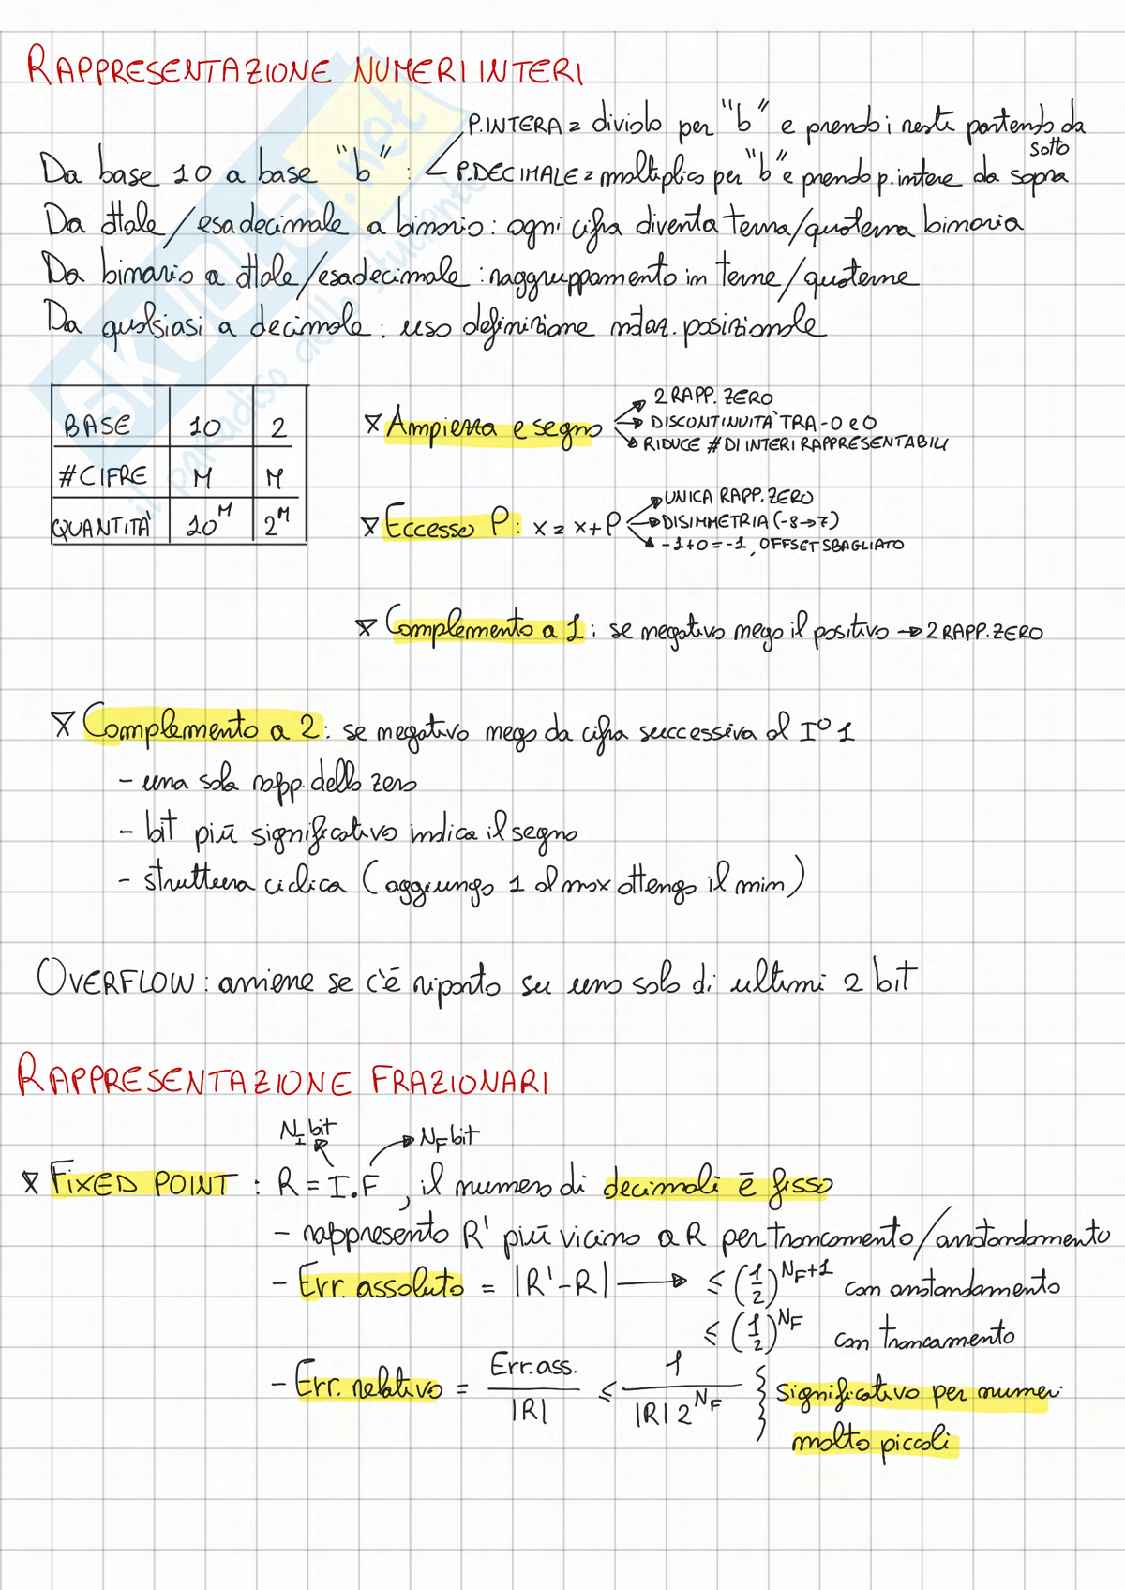 RAPPRESENTAZIONE NUMERI INTERI
P.INTERA = divido per "b" e prendo i resti partendo da sotto
Da base 10 a base "b" : P.DECIMALE = moltiplico per "b" e prendo p.intere da sopra
Da ottale/esadecimale a binario: ogni cifra diventa terna/quaterna binaria
Da binario a ottale/esadecimale: raggruppamento in terne/quaterne
Da qualsiasi a decimale: uso definizione notaz. posizionale
BASE 10 2
#CIFRE M M
QUANTITÀ 10^M 2^M
Ampiezza e segno
2 RAPP. ZERO
DISCONTINUITÀ TRA -0 e 0
RIDUCE # DI INTERI RAPPRESENTABILI
Eccesso P: x = x+P
UNICA RAPP. ZERO
DISIMMETRIA (-8→7)
-1+0=-1, OFFSET SBAGLIATO
Complemento a 1: se negativo nego il positivo → 2 RAPP. ZERO
Complemento a 2: se negativo nego da cifra successiva al I° 1
- una sola rapp. dello zero
- bit più significativo indica il segno
- struttura ciclica (aggiungo 1 al max ottengo il min)
OVERFLOW: avviene se c'è riporto su uno solo di ultimi 2 bit
RAPPRESENTAZIONE FRAZIONARI
N_I bit N_F bit
FIXED POINT : R = I.F, il numero di decimali è fisso
- rappresento R' più vicino a R per troncamento/arrotondamento
- Err. assoluto = |R'-R| → ≤ (1/2)^{N_F+1} con arrotondamento
≤ (1/2)^{N_F} con troncamento
- Err. relativo = Err.ass. / |R| ≤ 1 / |R| 2^{N_F} } significativo per numeri
molto piccoli
skuola.net
il paradiso dello studente